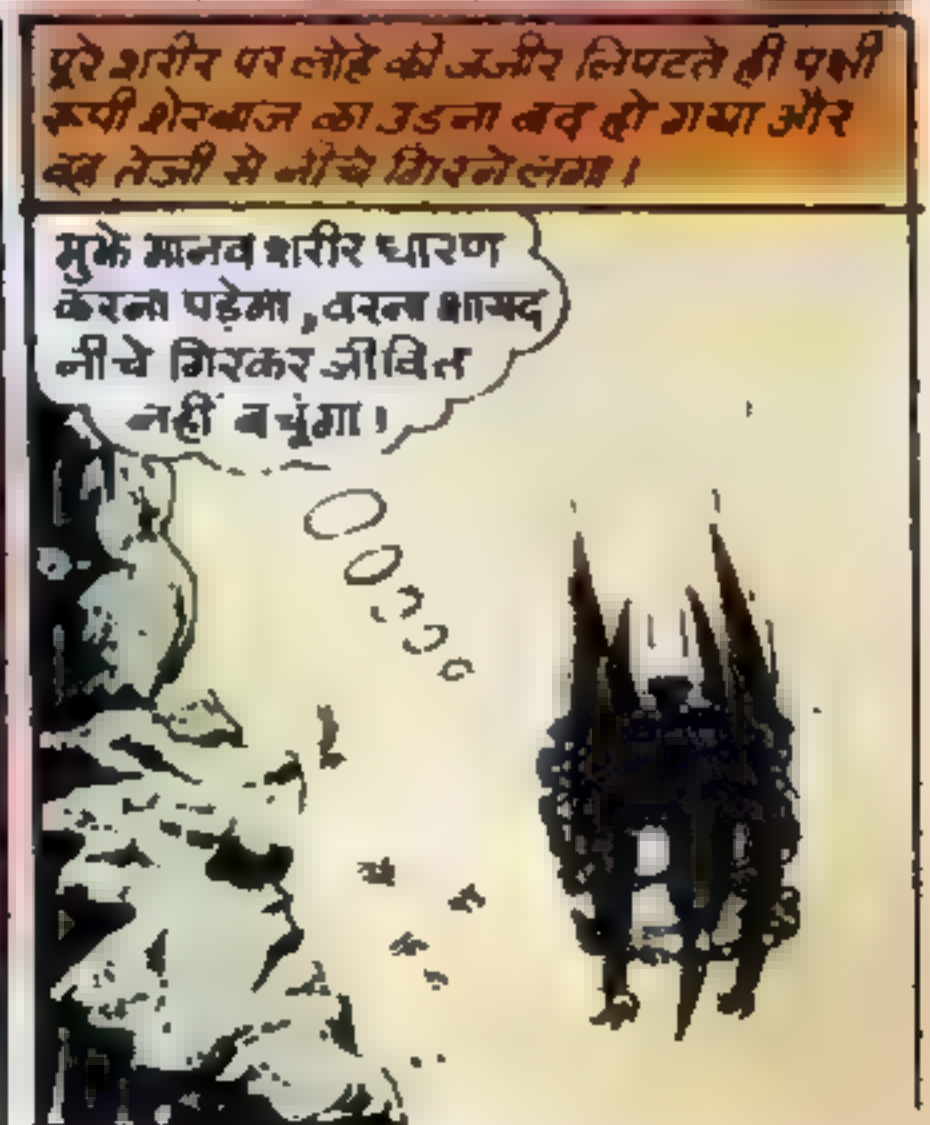 पूरे शरीर पर लोहे की जंजीर लिपटते ही पक्षी
रूपी शेरबाज का उड़ना बंद हो गया और
वह तेजी से नीचे गिरने लगा।
मुझे मानव शरीर धारण
करना पड़ेगा, वरना शायद
नीचे गिरकर जीवित
नहीं बचूंगा।